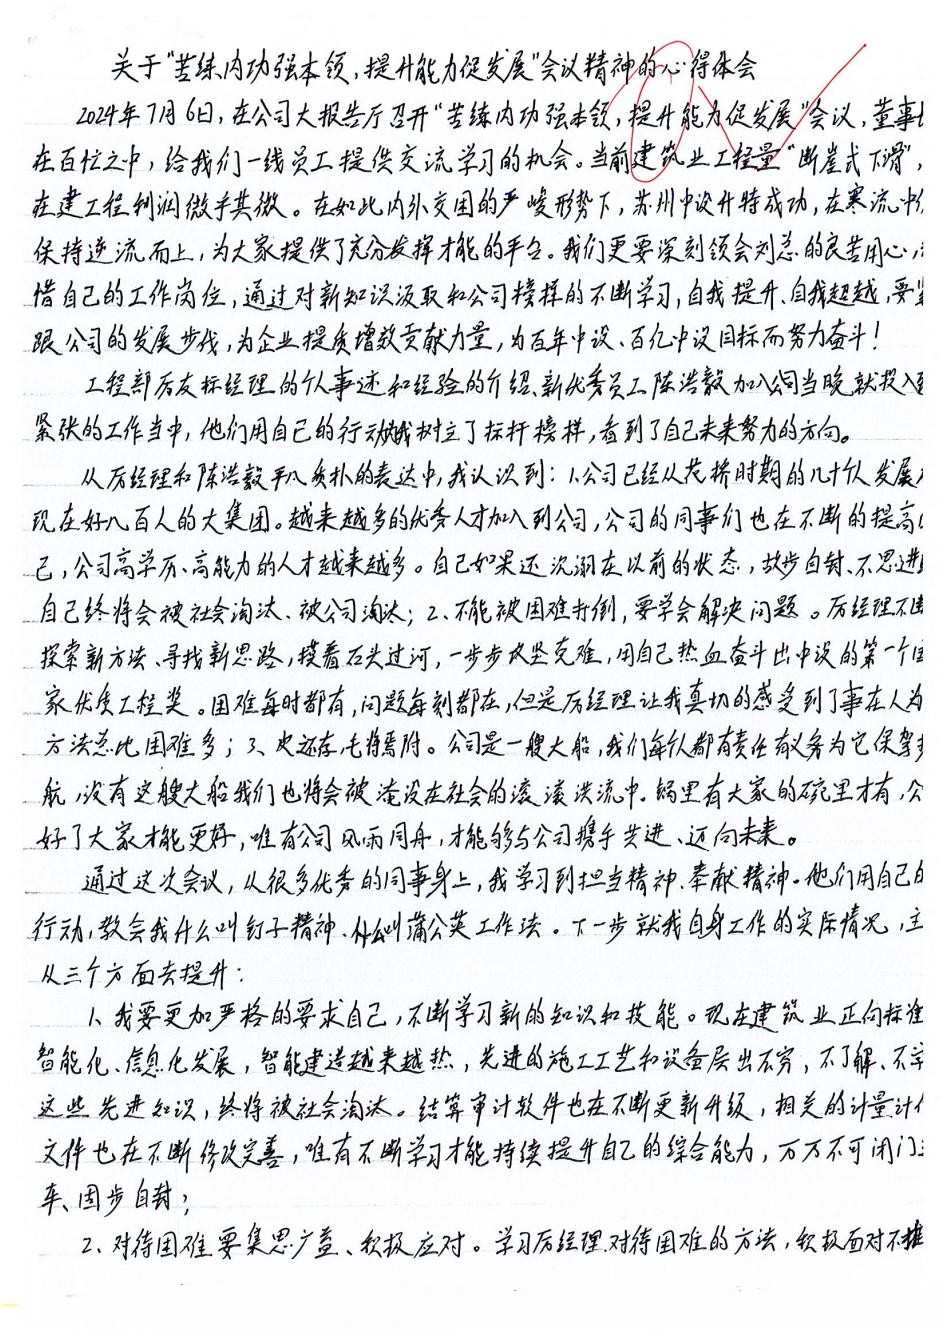 关于“苦练内功强本领，提升能力促发展”会议精神的心得体会
2024年7月6日，在公司大报告厅召开“苦练内功强本领，提升能力促发展”会议，董事
在百忙之中，给我们一线员工提供交流学习的机会。当前建筑业工程量“断崖式下滑”，
在建工程利润微乎其微。在如此内外交困的严峻形势下，苏州中设升特成功，在寒流中
保持逆流而上，为大家提供了充分发挥才能的平台。我们更要深刻领会刘总的良苦用心，
惜自己的工作岗位，通过对新知识汲取和公司榜样的不断学习，自我提升、自我超越，要
跟公司的发展步伐，为企业提质增效贡献力量，为百年中设、百亿中设目标而努力奋斗！
工程部厉友标经理的个人事迹和经验的介绍、新优秀员工陈浩毅加入公司当晚就投入到
紧张的工作当中，他们用自己的行动给我树立了标杆榜样，看到了自己未来努力的方向。
从厉经理和陈浩毅平凡质朴的表达中，我认识到：1、公司已经从花桥时期的几十个人发展
现在好几百人的大集团。越来越多的优秀人才加入到公司，公司的同事们也在不断的提高
己，公司高学历、高能力的人才越来越多。自己如果还沉溺在以前的状态，故步自封、不思进
自己终将会被社会淘汰、被公司淘汰；2、不能被困难打倒，要学会解决问题。厉经理不
探索新方法、寻找新思路，摸着石头过河，一步步攻坚克难，用自己热血奋斗出中设的第一个国
家优质工程奖。困难每时都有，问题每刻都在，但是厉经理让我真切的感受到了事在人为
方法总比困难多；3、皮之不存，毛将焉附。公司是一艘大船，我们每个人都有责任有义务为它保驾
航，没有这艘大船我们也将会被淹没在社会的滚滚洪流中。锅里有大家的碗里才有，公
好了大家才能更好，唯有公司风雨同舟，才能够与公司携手共进、迈向未来。
通过这次会议，从很多优秀的同事身上，我学习到担当精神、奉献精神。他们用自己的
行动，教会我什么叫钉子精神、什么叫蒲公英工作法。下一步就我自身工作的实际情况，主
从三个方面去提升：
1、我要更加严格的要求自己，不断学习新的知识和技能。现在建筑业正向标准
智能化、信息化发展，智能建造越来越热，先进的施工工艺和设备层出不穷，不了解、不学
这些先进知识，终将被社会淘汰。结算审计软件也在不断更新升级，相关的计量计价
文件也在不断修改完善，唯有不断学习才能持续提升自己的综合能力，万万不可闭门
车、固步自封；
2、对待困难要集思广益、积极应对。学习厉经理对待困难的方法，积极面对不推